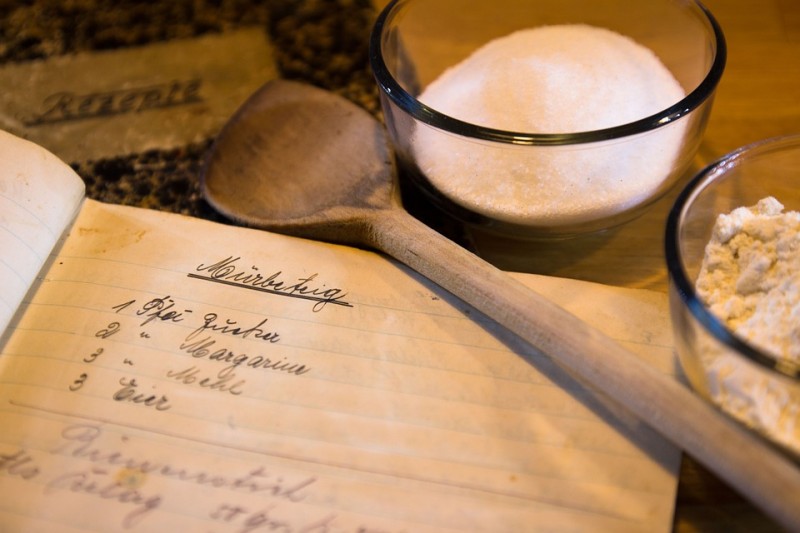 Rezepte
Mürbeteig
1 Pfd Zucker
2 " Margarine
3 " Mehl
3 Eier